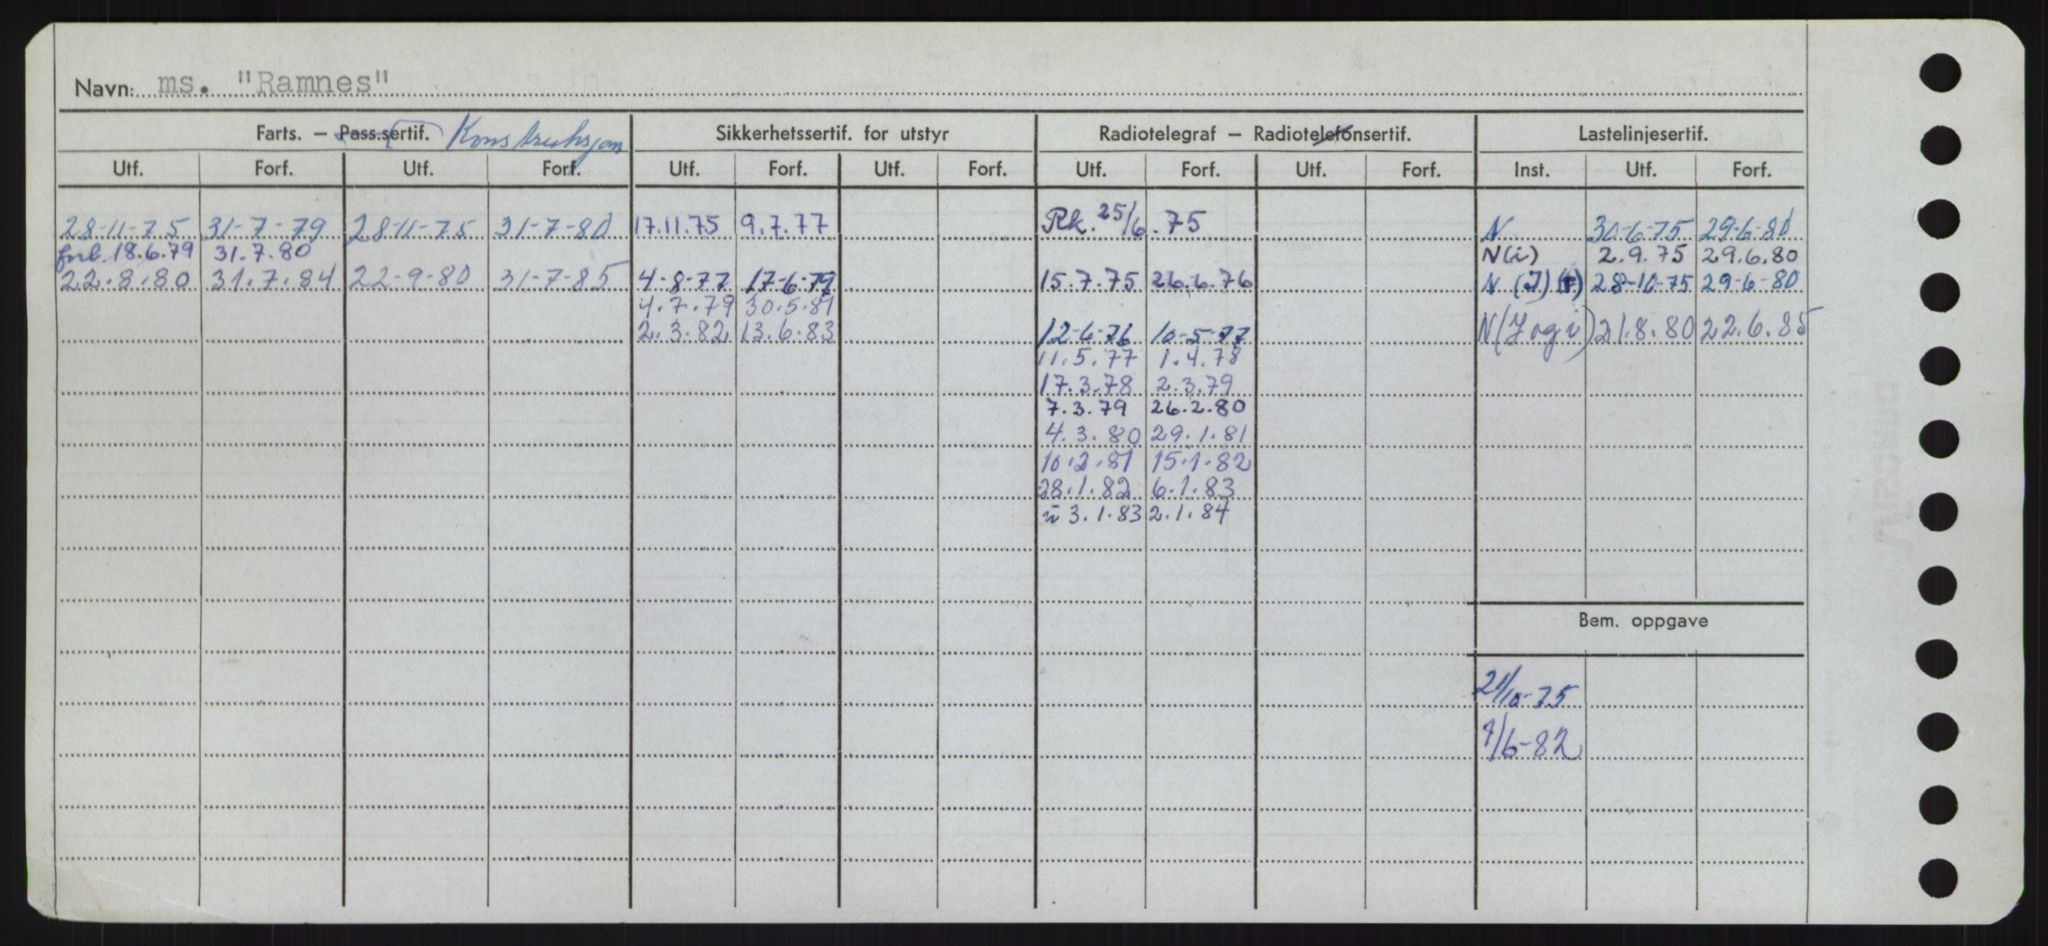 Navn: ms. "Ramnes"
Farts. — Pass.sertif. Konstruksjon Sikkerhetssertif. for utstyr Radiotelegraf — Radiotelefonsertif. Lastelinjesertif.
Utf. Forf. Utf. Forf. Utf. Forf. Utf. Forf. Utf. Forf. Utf. Forf. Inst. Utf. Forf.
28-11-75 31-7-79 28-11-75 31-7-80 17.11.75 9.7.77 Rk. 25/6.75 N 30-6-75 29-6-80
forl. 18.6.79 31.7.80 N(i) 2.9.75 29.6.80
22.8.80 31.7.84 22-9-80 31-7-85 4-8-77 17-6-79 15.7.75 26.6.76 N (J) 28-10-75 29-6-80
4.7.79 30.5.81
2.3.82 13.6.83 12-6-76 10-5-77 N(J og i) 21.8.80 22.6.85
11.5.77 1.4.78
17.3.78 2.3.79
7.3.79 26.2.80
4.3.80 29.1.81
10.2.81 15.1.82
28.1.82 6.1.83
3.1.83 2.1.84
Bem. oppgave
21/10-75
/6-82